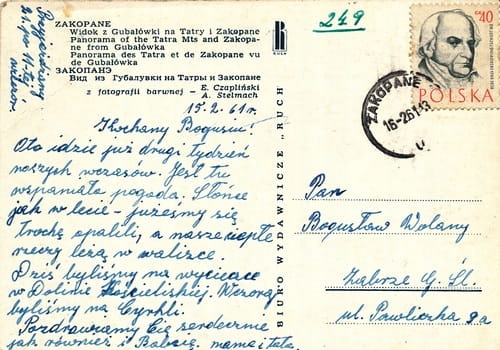 Przyjeżdżamy
21. po 11-tej
wieczor.
ZAKOPANE
Widok z Gubałówki na Tatry i Zakopane
Panorama of the Tatra Mts and Zakopa-
ne from Gubałówka
Panorama des Tatra et de Zakopane vu
de Gubałówka
ЗАКОПАНЭ
Вид из Губалувки на Татры и Закопане
z fotografii barwnej — E. Czapliński
A. Stelmach
RUCH
249
15.2.61r.
Kochany Bogusiu!
Oto idzie już drugi tydzień
naszych wczasów. Jest tu
wspaniała pogoda. Słońce
jak w lecie - jużeśmy się
trochę opalili, a nasze ciepłe
rzeczy leżą w walizce.
Dziś byliśmy na wycieczce
w Dolinie Kościeliskiej. Wczoraj
byliśmy na Cyrhli.
Pozdrawiamy Cię serdecznie
jak również i Babcię. mama i tata.
BIURO WYDAWNICZE „RUCH
40
POLSKA
ZAKOPANE
16-2.61-13
Pan
Bogusław Wolany
Zabrze G. Śl.
ul. Pawliczka 9a